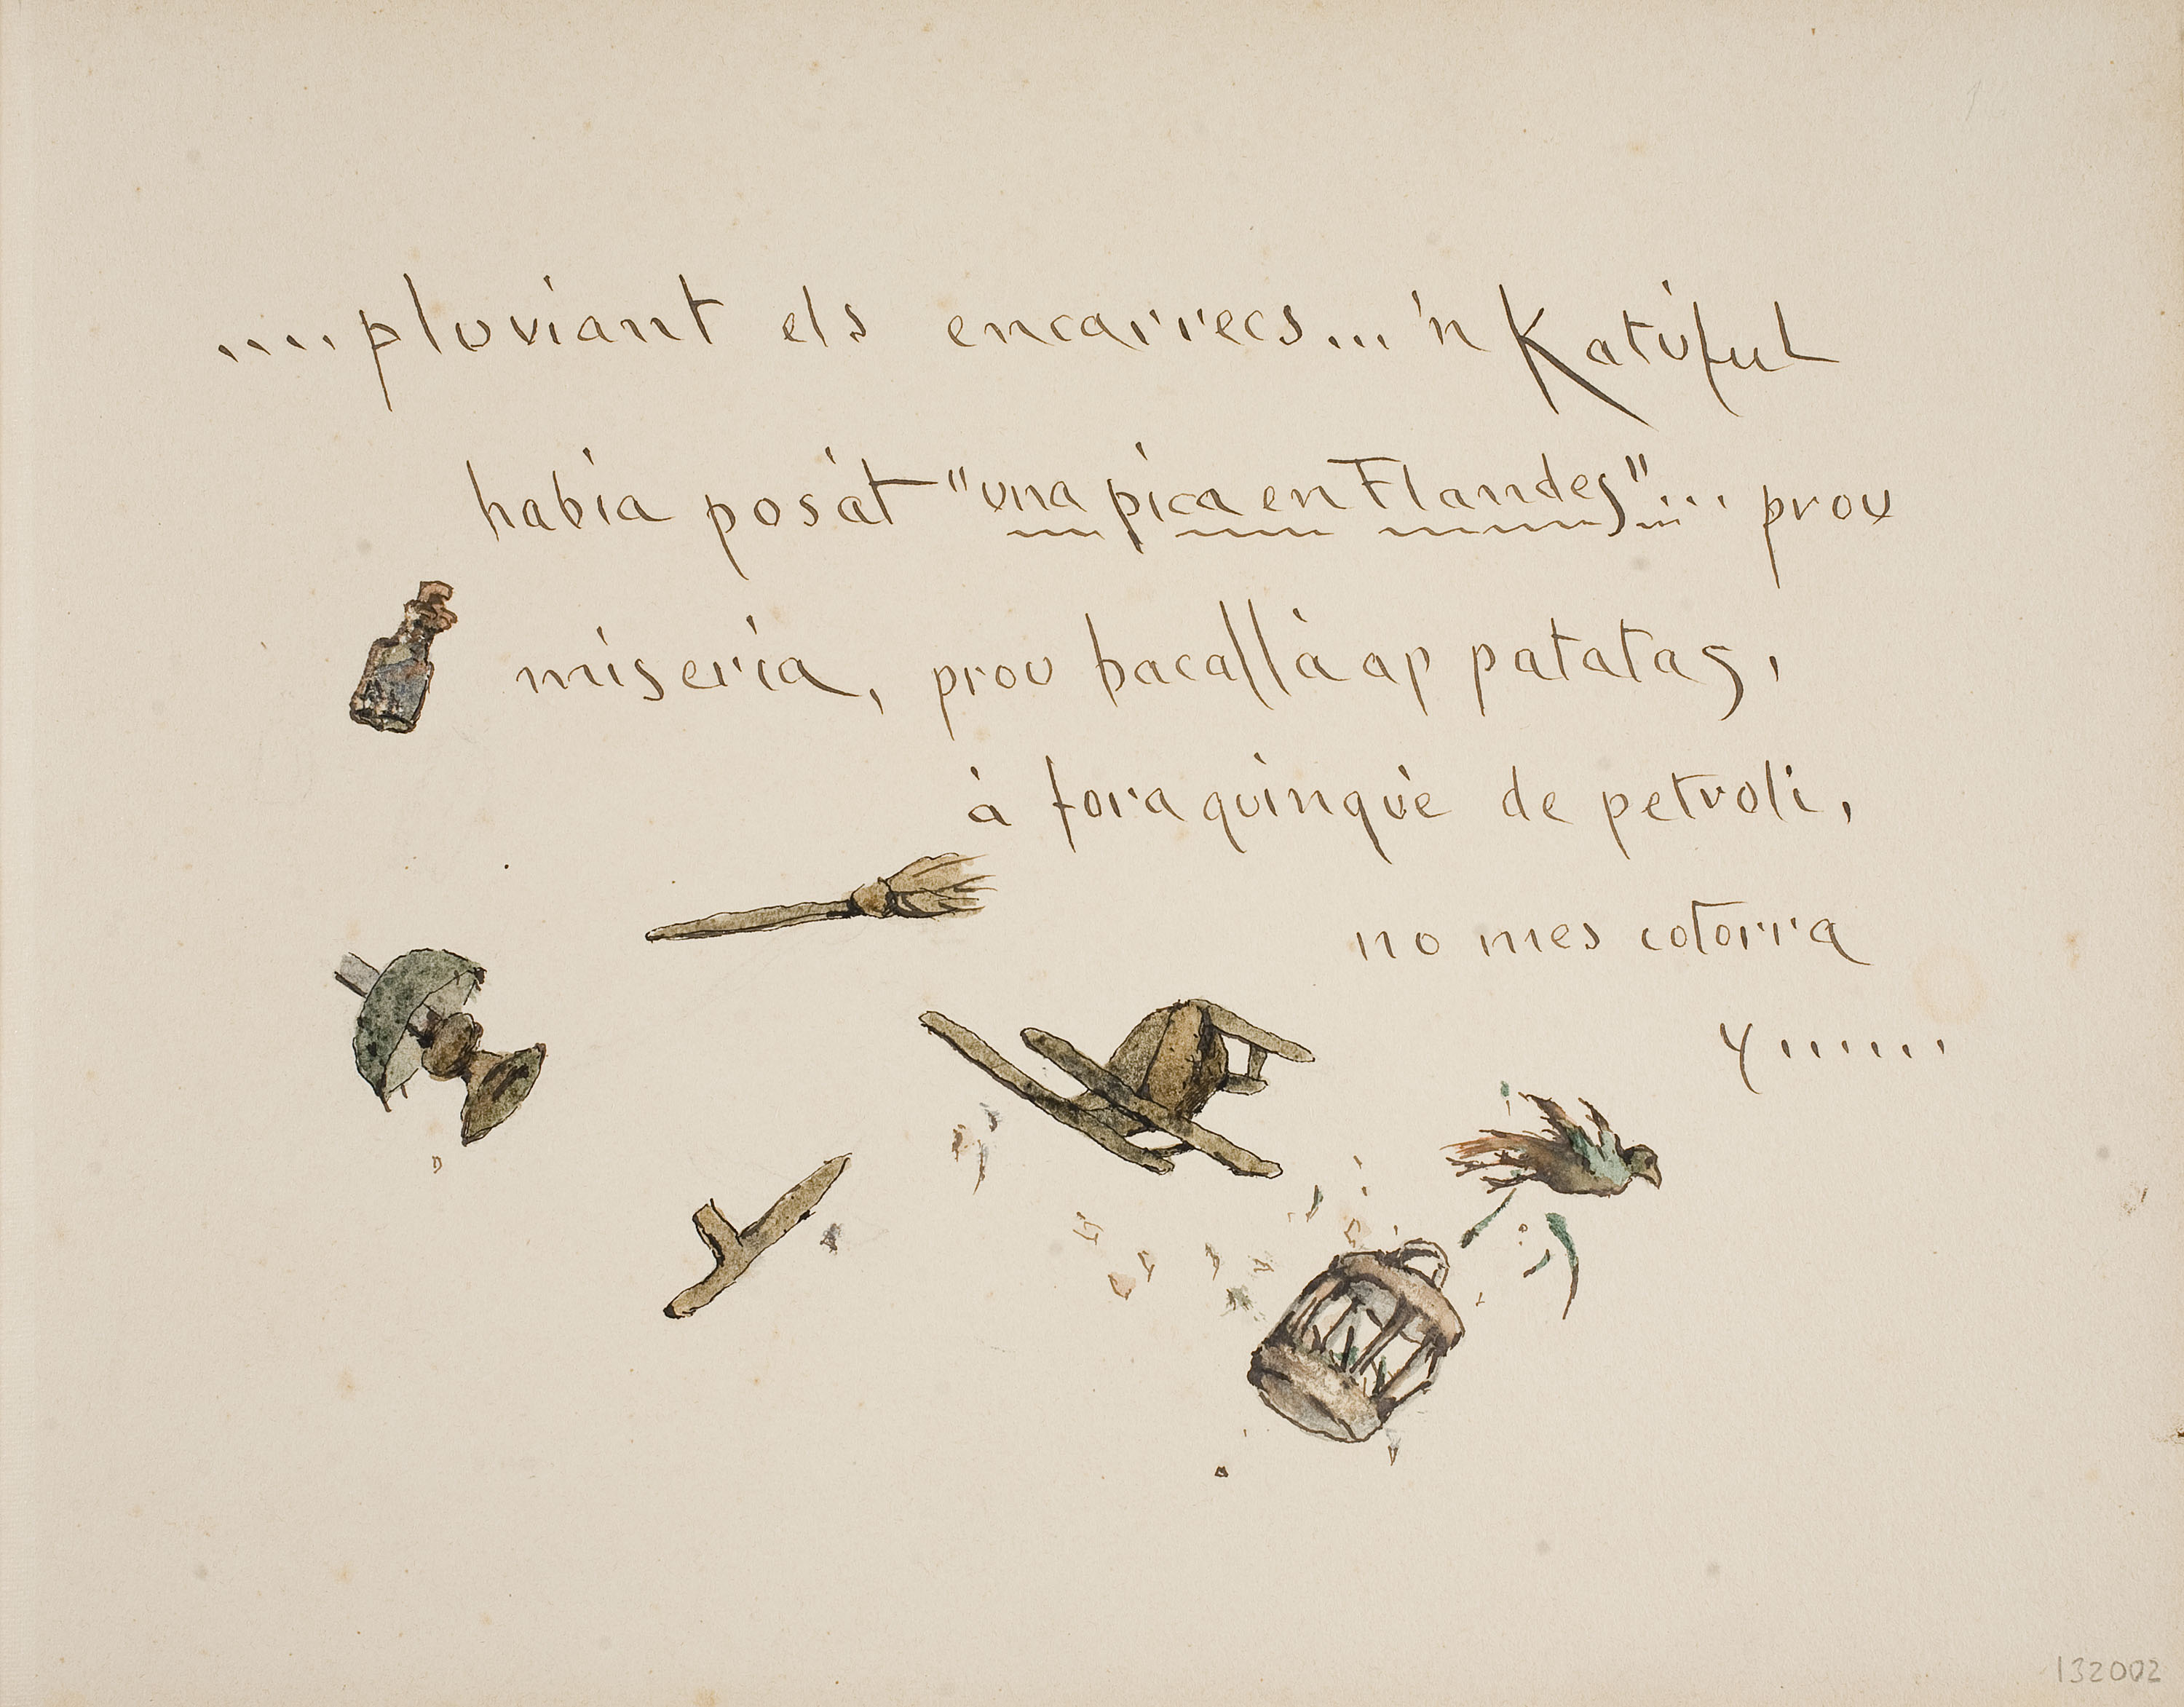 ....pluviant els encarrecs... 'n Katúful
habia posát "una pica en Flandes"... prou
miseria, prou bacallà ap patatas,
à fora quinqùe de petroli,
no mes cotorra
y.......
132002